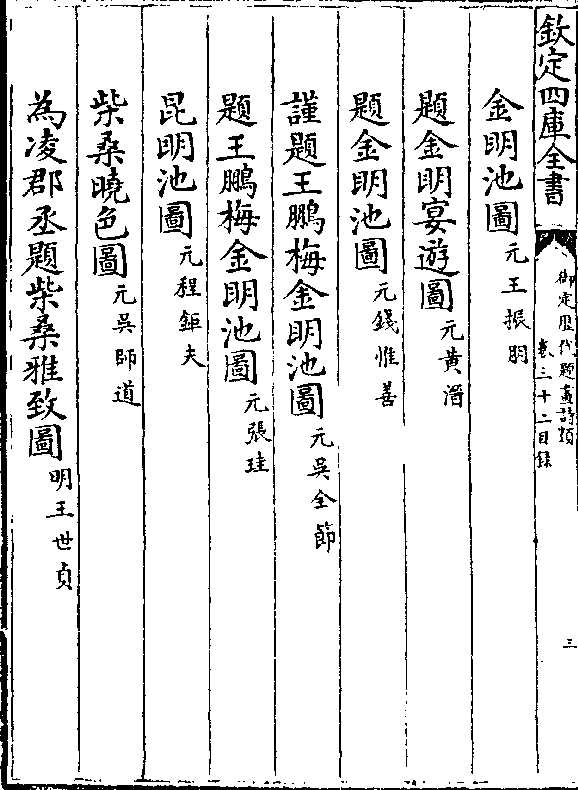 欽定四庫全書
御定歷代題畫詩類
卷三十二目錄
三
金明池圖元王振朋
題金明宴遊圖元黃溍
題金明池圖元錢惟善
謹題王鵬梅金明池圖元吳全節
題王鵬梅金明池圖元張珪
昆明池圖元程鉅夫
柴桑曉色圖元吳師道
為凌郡丞題柴桑雅致圖明王世貞